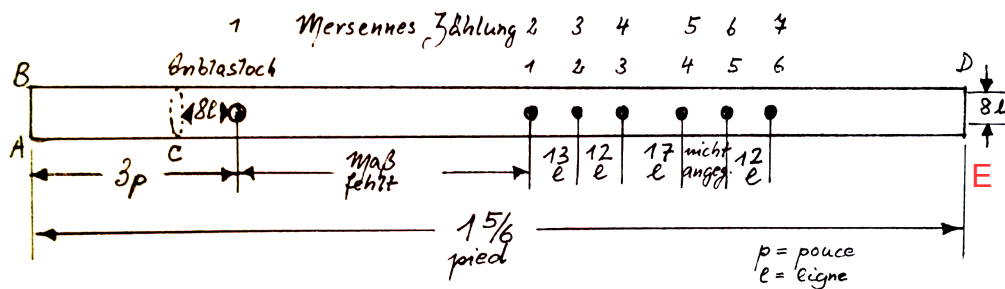 1 Mersennes Zählung 2 3 4 5 6 7
B Anblasloch 1 2 3 4 5 6 D
8l 8l
A C
3p Maß fehlt 13 l 12 l 17 l nicht angeg. 12 l E
1 5/6 pied
p = pouce
l = ligne